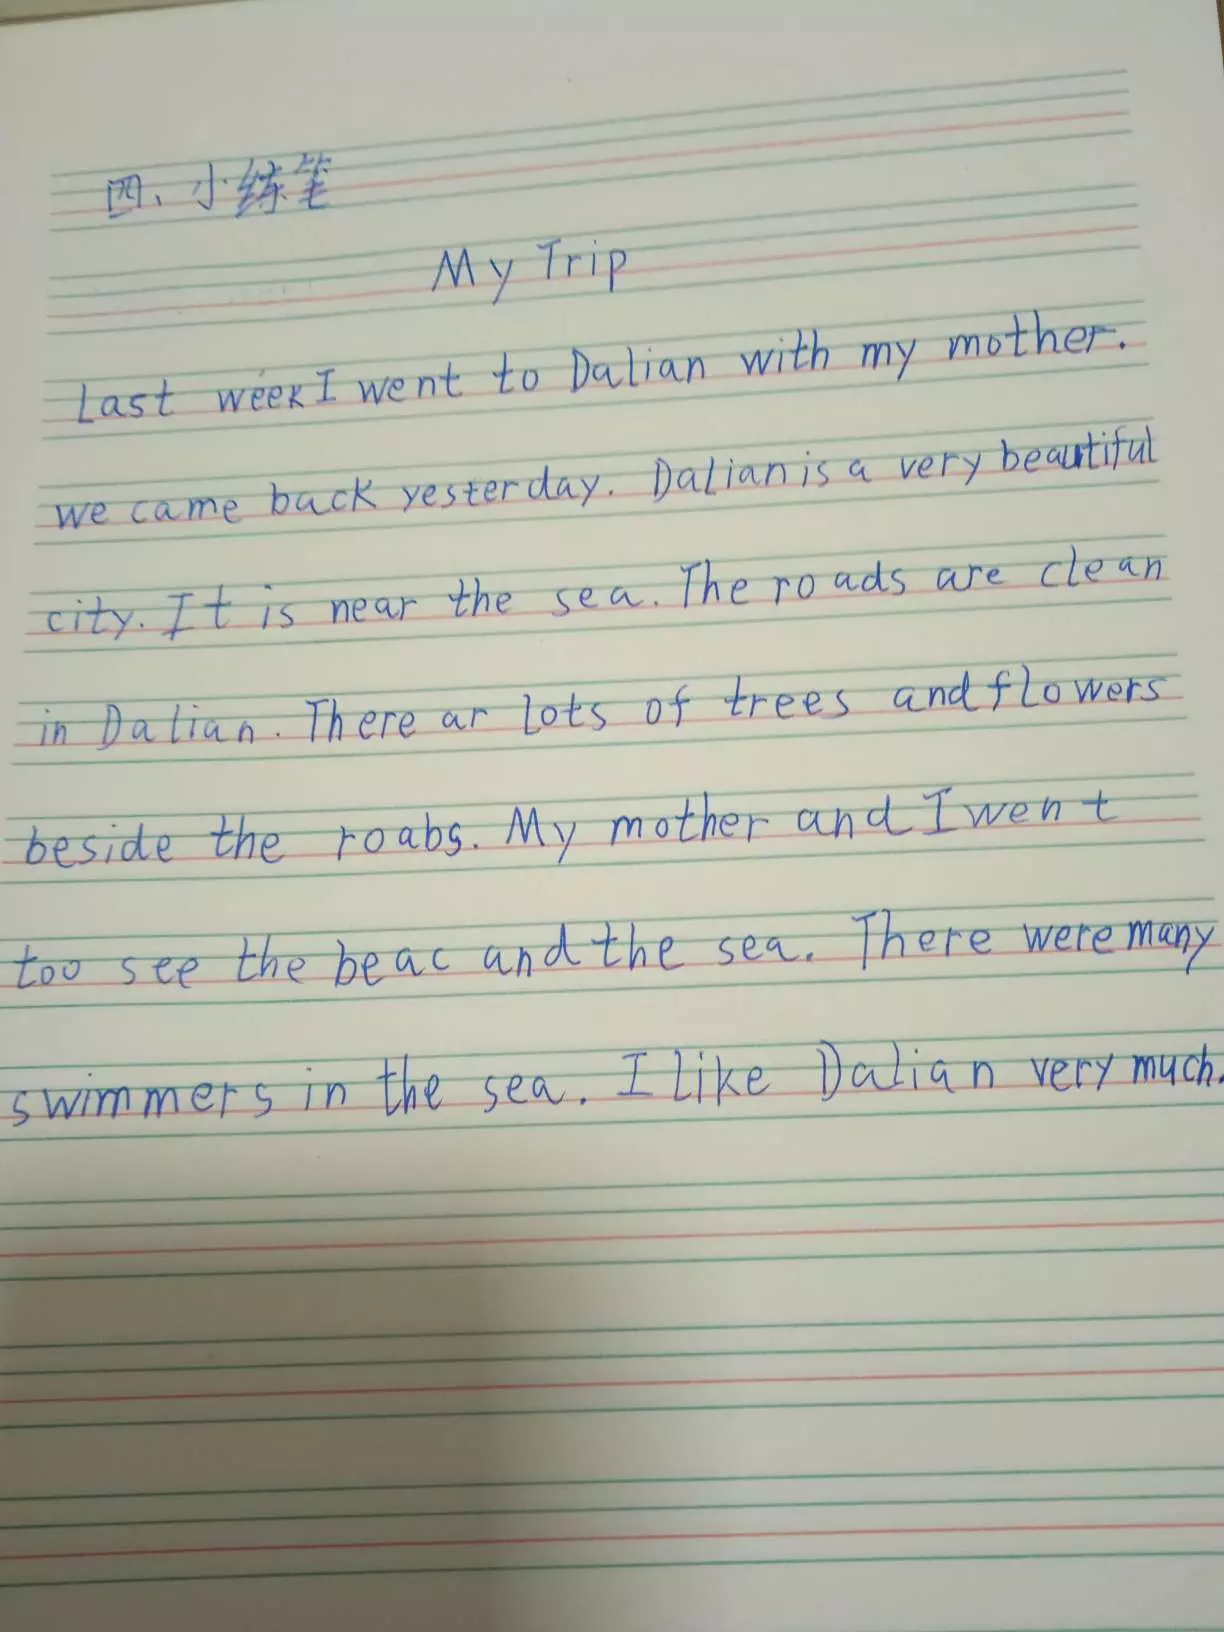 四、小练笔
My Trip
Last week I went to Dalian with my mother.
we came back yesterday. Dalian is a very beautiful
city. It is near the sea. The roads are clean
in Dalian. There ar lots of trees and flowers
beside the roabs. My mother and I went
too see the beac and the sea. There were many
swimmers in the sea. I like Dalian very much.